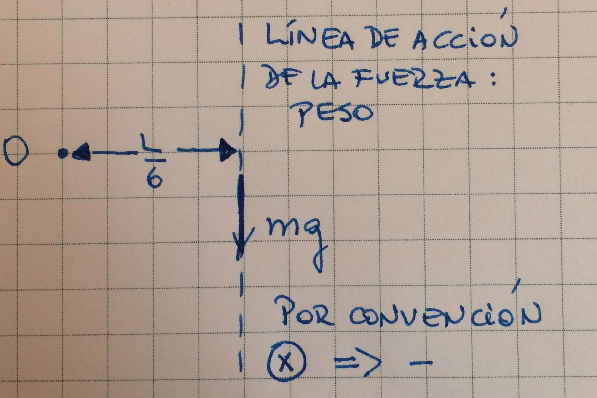 LÍNEA DE ACCIÓN
DE LA FUERZA:
PESO
O
L/6
mg
POR CONVENCIÓN
ⓧ => -